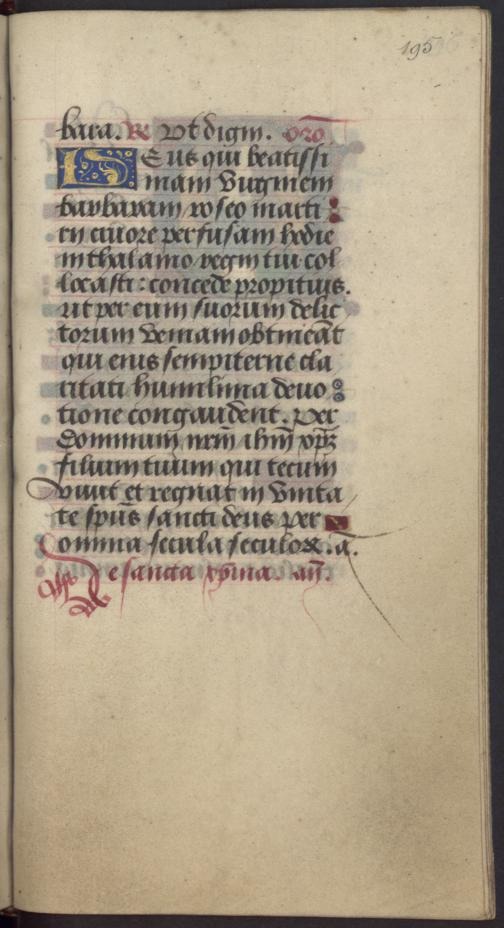 195
bara. R Vt digni. oro
DEus qui beatissi
mam virginem
barbaram roseo marti
rii cruore perfusam hodie
in thalamo regni tui col
locasti : concede propitius.
ut per eum suorum delic
torum veniam obtineãt
qui eius sempiterne cla
ritati humilima devo
tione congaudent. Per
dominum nrm̃ ihm̃ xp̃z
filium tuum qui tecum
vivit et regnat in unita
te spũs sancti deus per
omnia secula seculoꝝ. a.
De sancta xp̃ina. añ.